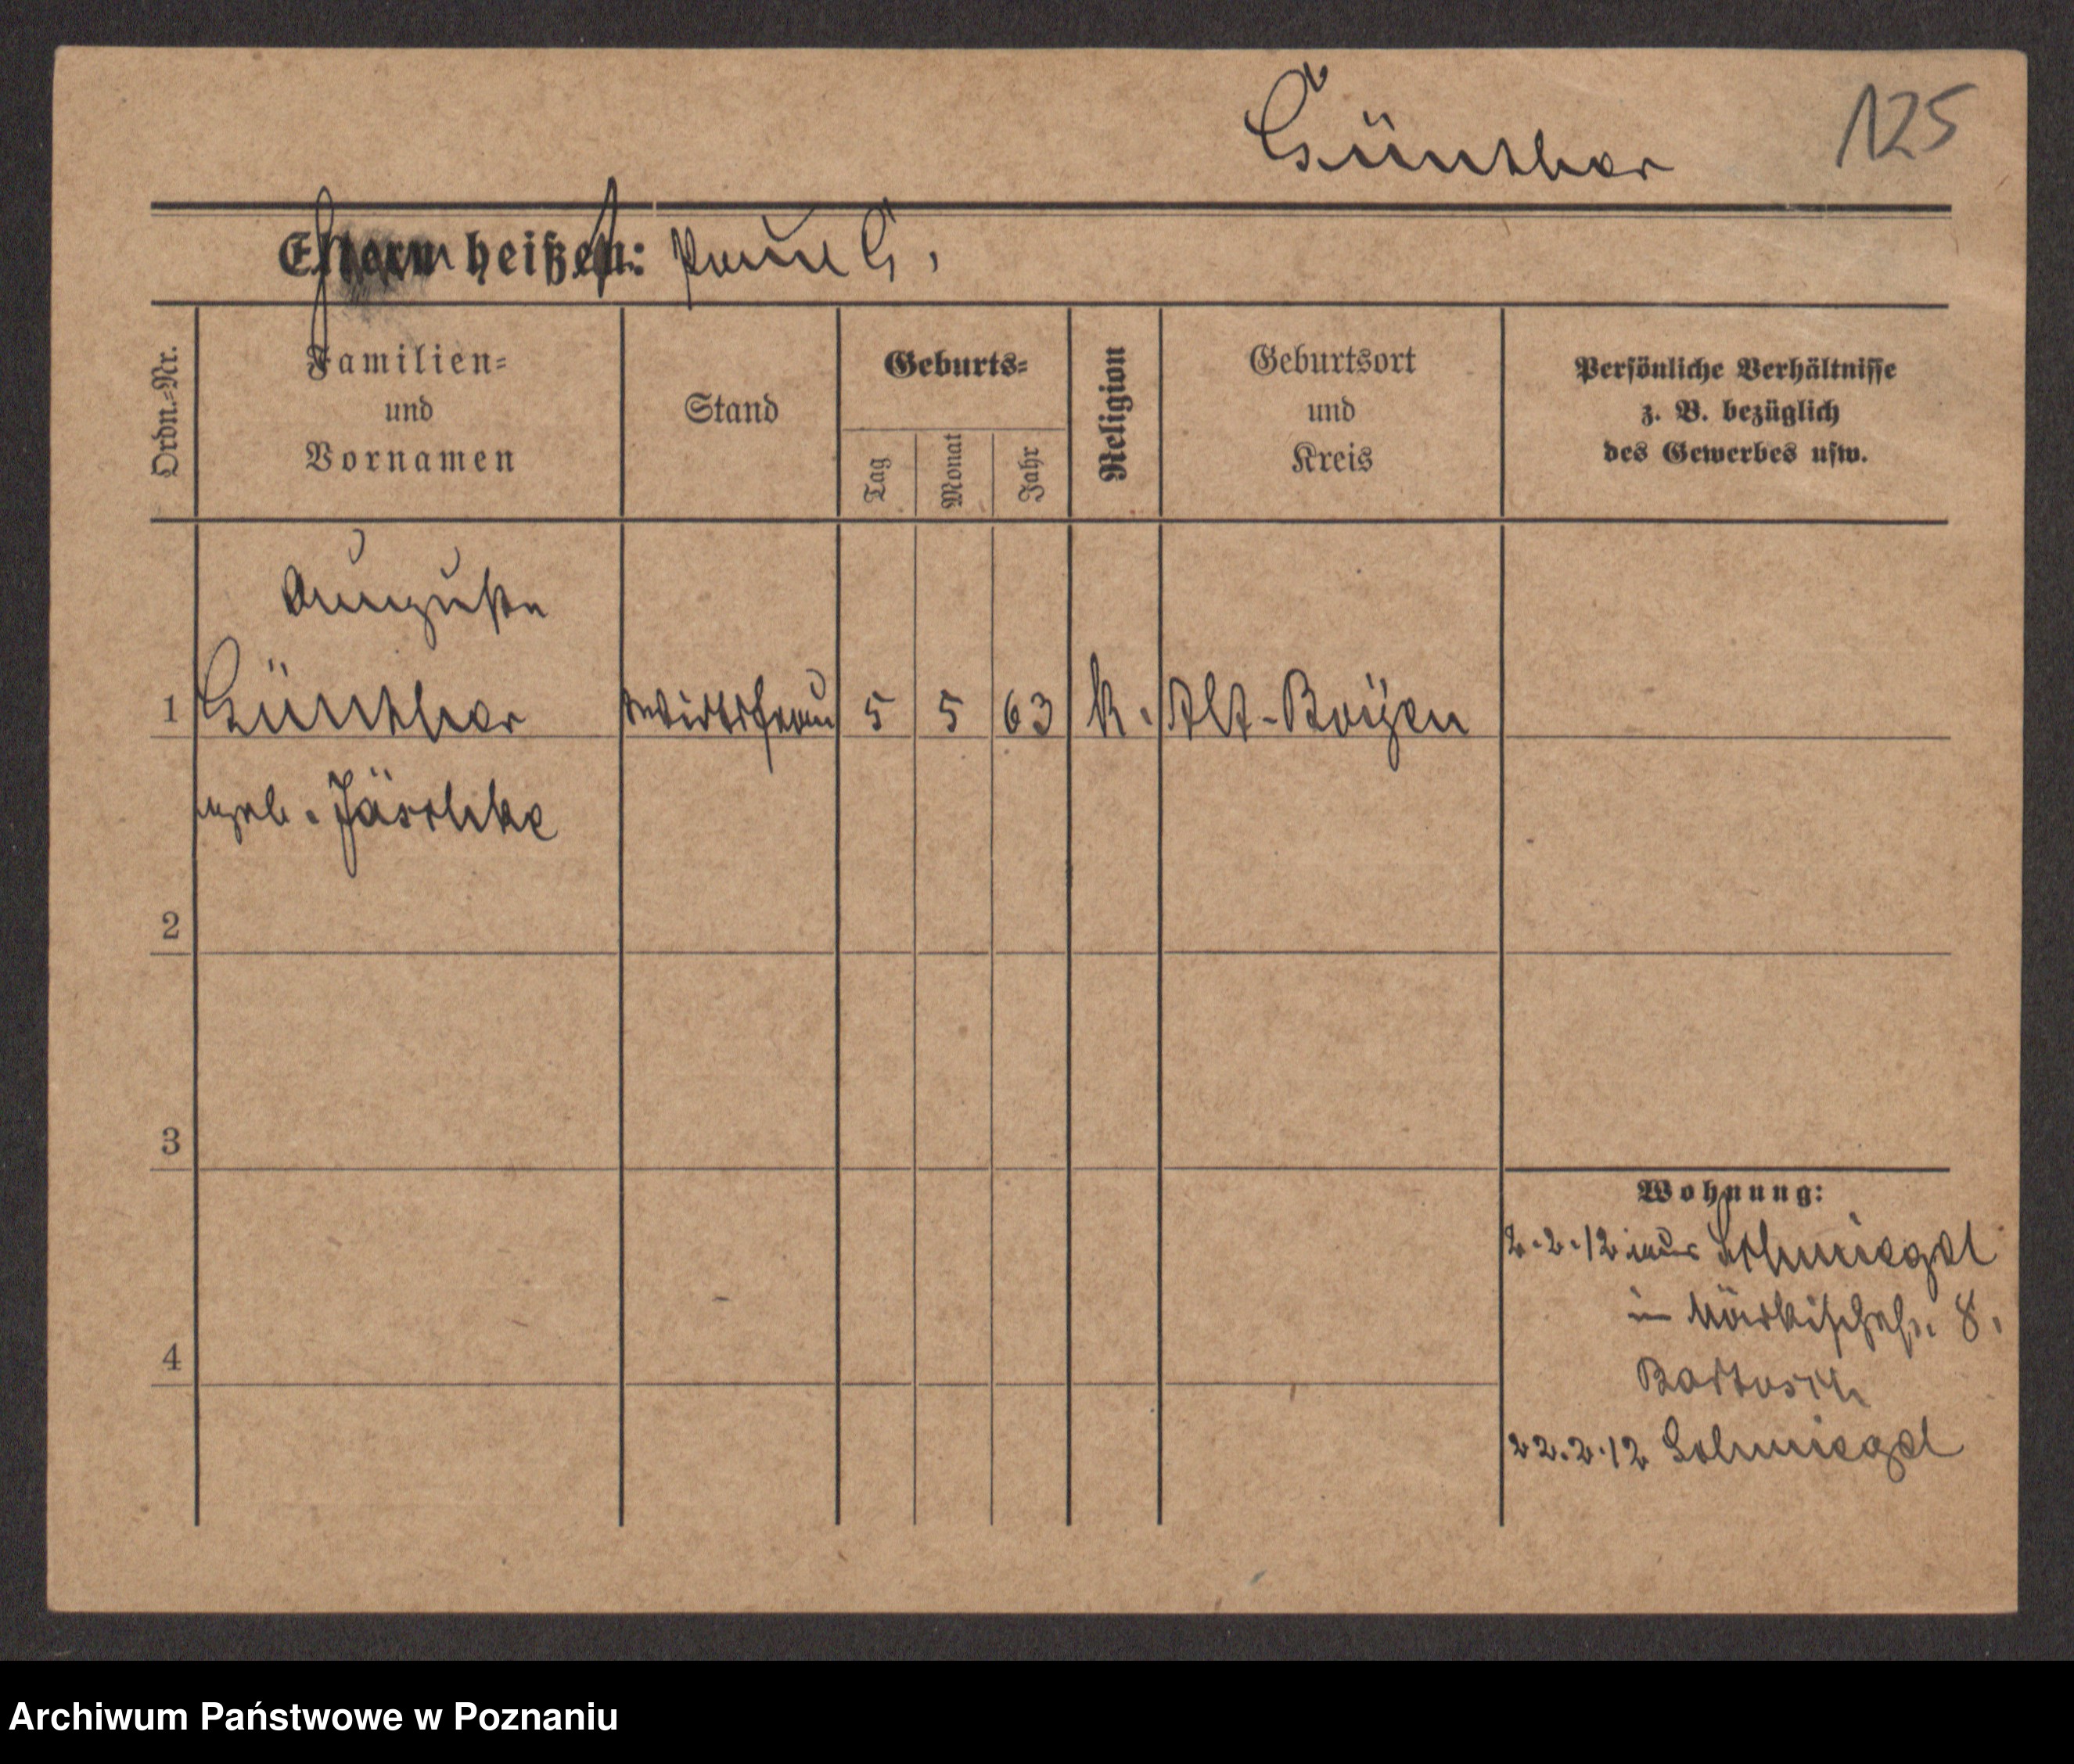 Günther 125
Eltern heißen: Paul G.
Ordn.-Nr.
Familien-
und
Vornamen
Stand
Geburts-
Tag
Monat
Jahr
Religion
Geburtsort
und
Kreis
Persönliche Verhältnisse
z. B. bezüglich
des Gewerbes usw.
Auguste
1 Günther Wirtsfrau 5 5 63 k. Alt-Boyen
geb. Jäschke
2
3
4
Wohnung:
2.2.12 aus Schmiegel
in Märkischestr. 8.
Bartosch
22.2.12 Schmiegel
Archiwum Państwowe w Poznaniu